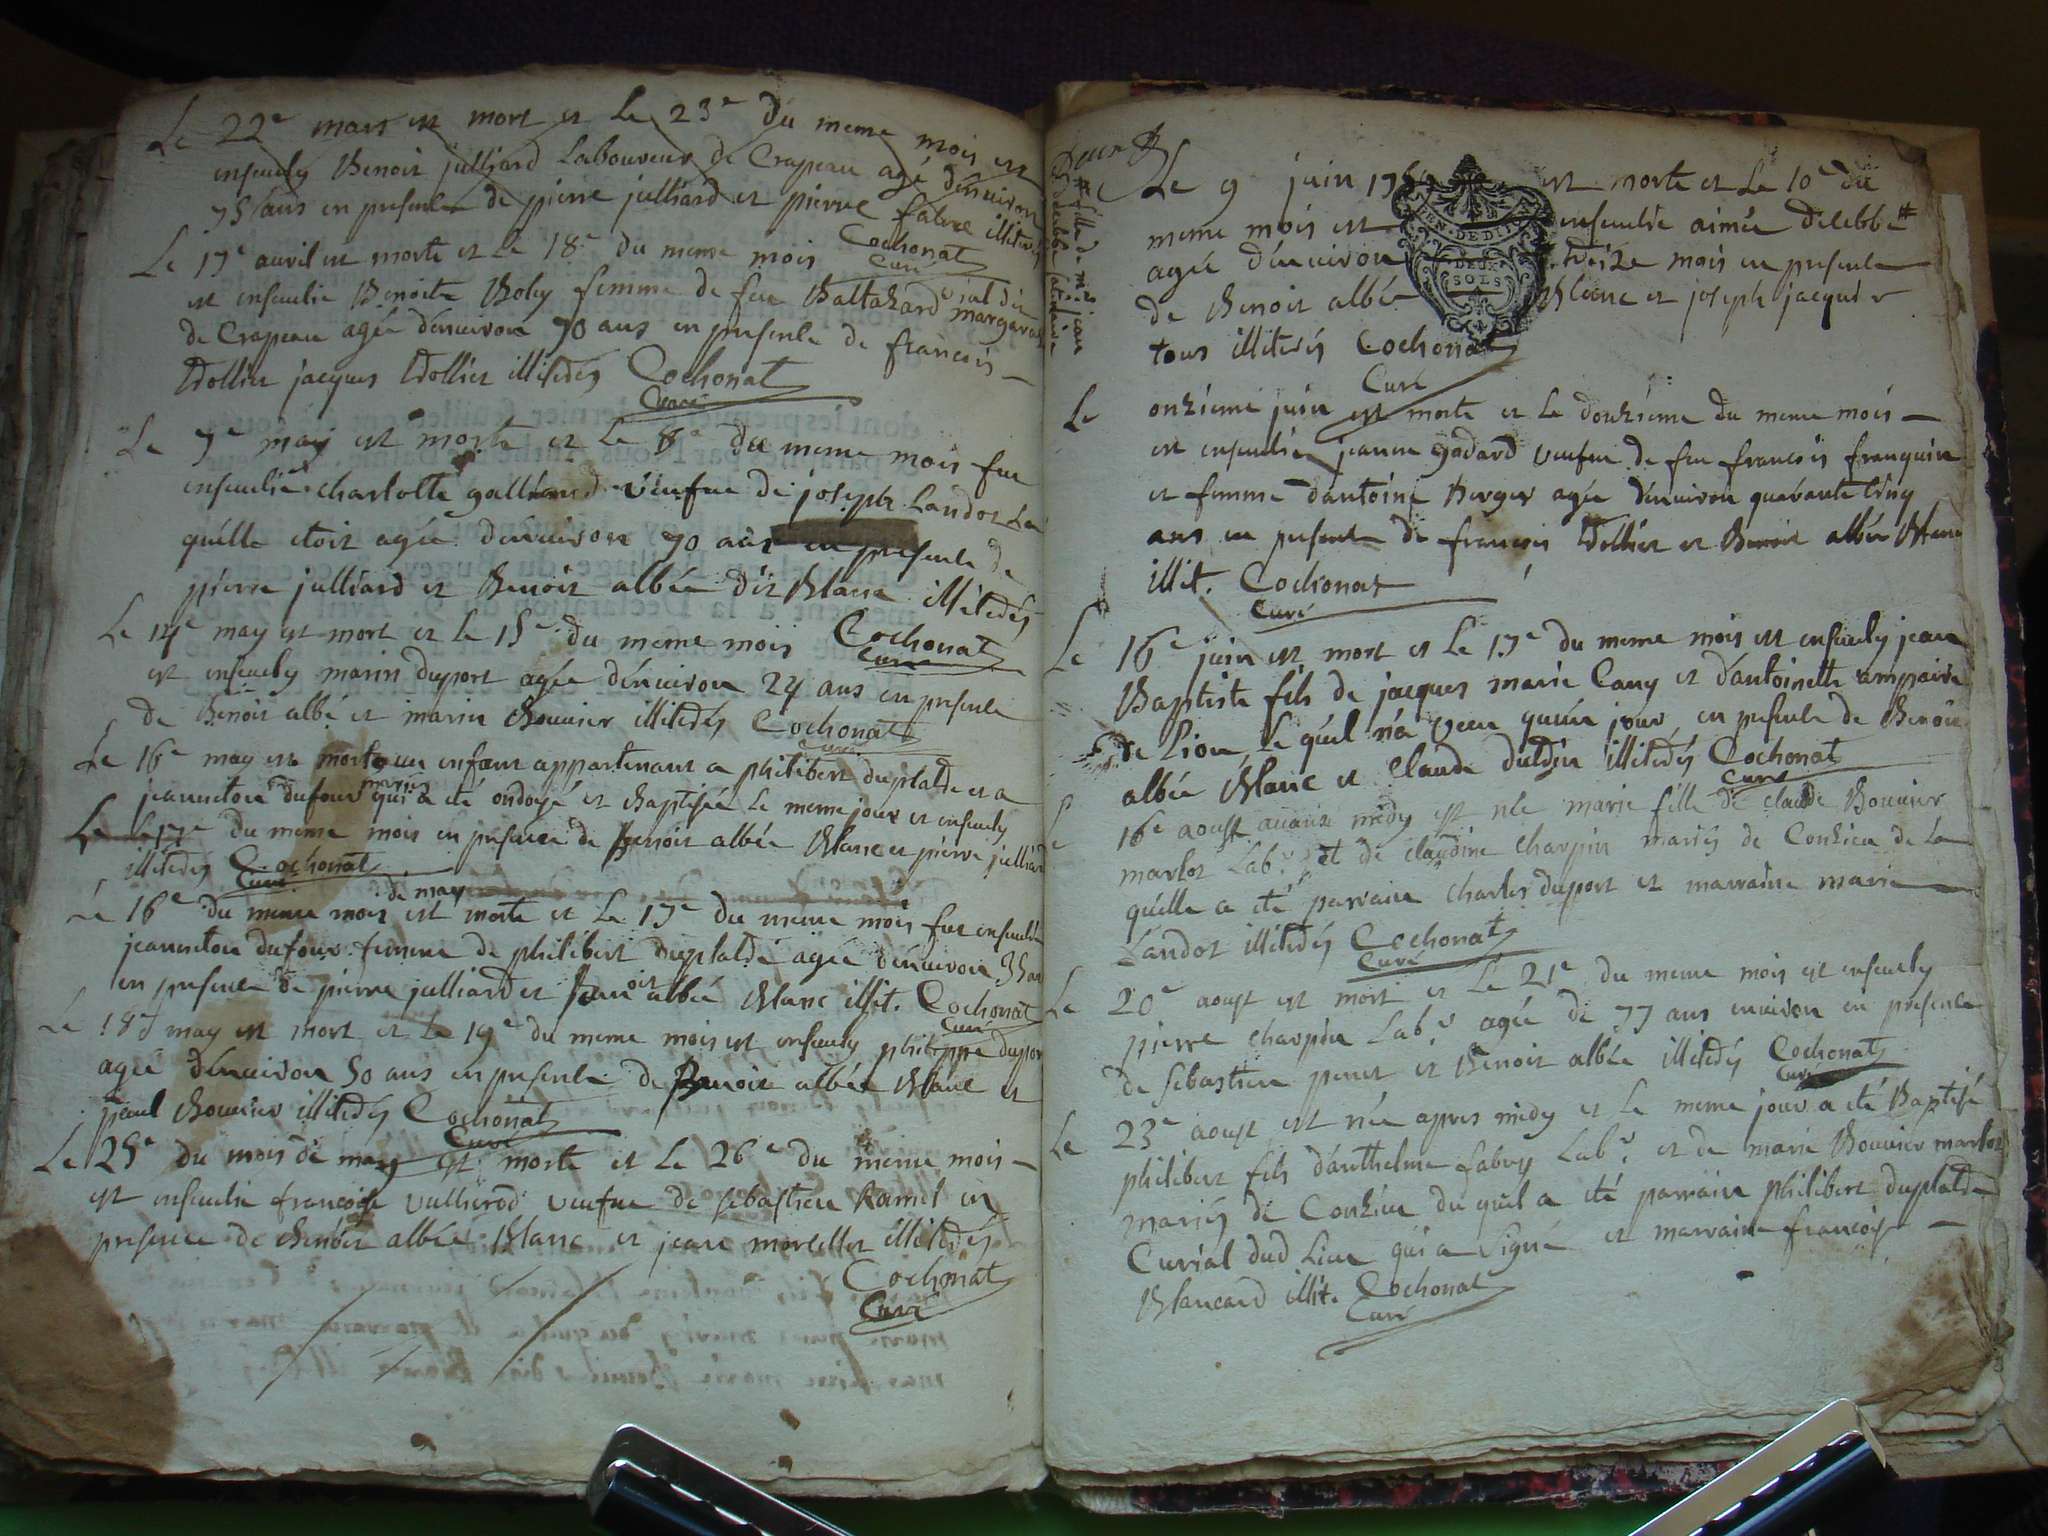 Le 22e mars est mort et Le 23e du meme mois est
ensevely Benoit julliard Laboureur de Crapeau agé d'énuiron
75 ans en presence de pierre julliard et pierre fabre illiterés
Cochonat
Curé
Le 17e auril est morte et le 18e du meme mois
est ensevelie Benoite Boby femme de feu Baltahard
de Crapeau agée d'énuiron 70 ans en presence de francois
Dollier jacques Dollier illiterés Cochonat
Curé
Le 7e may est morte et le 8e du meme mois fut
ensevelie charlotte galliand veufue de joseph Landot
qu'elle etoit agée d'enuiron 70 ans en presence de
pierre julliard et Benoit albée dit Blanc illiterés
Cochonat
Curé
Le 14e may est mort et le 15e du meme mois
est ensevely marin duport agée d'énuiron 24 ans en presence
de Benoit albé et marin Bouuier illiterés Cochonat
Curé
Le 16e may est morte un enfant appartenant a philibert duplatde et a
jeanneton dufour mariés qui a eté ondoyé et Baptisée le meme jour et ensevely
Le 17e du meme mois en presence de Benoit albée Blanc et pierre julliard
illiterés Cochonat
Curé
Le 16e du meme mois de may est morte et Le 17e du meme mois fut ensevelie
jeanneton dufour femme de philibert duplatde agée d'énuiron
en presence de pierre julliard et Benoit albée Blanc illit. Cochonat
Curé
Le 18e may est mort et le 19e du meme mois est ensevely philippe duport
agée d'énuiron 50 ans en presence de Benoit albée Blanc et
paul Bouuier illiterés Cochonat
Curé
Le 25e du mois de may est morte et Le 26e du meme mois
est ensevelie francoise vullierod veufue de sebastien Ramel en
presence de Benoit albée Blanc et jean morellet illiterés
Cochonat
Curé
# fille de jean
Le 9 juin 1759 est morte et Le 10e du
meme mois est ensevelie aimée delebbe #
agée d'énuiron treize mois en presence
de Benoit albée Blanc et joseph jacquier
tous illiterés Cochonat
Curé
GEN. DE DIJON
DEUX
SOLS
Le onzieme juin est morte et Le douzieme du meme mois
est ensevelie jeanne godard veufue de feu francois franquin
et femme d'antoine Berger agée d'énuiron quarante cinq
ans en presence de francois Dollier et Benoit albée Blanc
illit. Cochonat
Curé
Le 16e juin est mort et Le 17e du meme mois est ensevely jean
Baptiste fils de jacques marie Cany et d'antoinette
de Lion, Le quel n'a vecu qu'un jour en presence de Benoit
albée Blanc et Claude illiterés Cochonat
Curé
Le 16e aoust auant midy est née marie fille de claude Bouuier
marlot Labr. et de claudine charpin mariés de Conzieu de La
quelle a eté parrain charles duport et marraine marie
Landot illiterés Cochonat
Curé
Le 20e aoust est mort et Le 21e du meme mois est ensevely
pierre charpin Labr. agée de 77 ans enuiron en presence
de sebastien peret et Benoit albée illiterés Cochonat
Curé
Le 23e aoust est née apres midy et Le meme jour a eté Baptisé
philibert fils d'anthelme fabry Labr. et de marie Bouuier marlot
mariés de Conzieu du quel a eté parrain philibert duplatde
Curial dud Lieu qui a signé et marraine francoise
Blancard illit. Cochonat
Curé